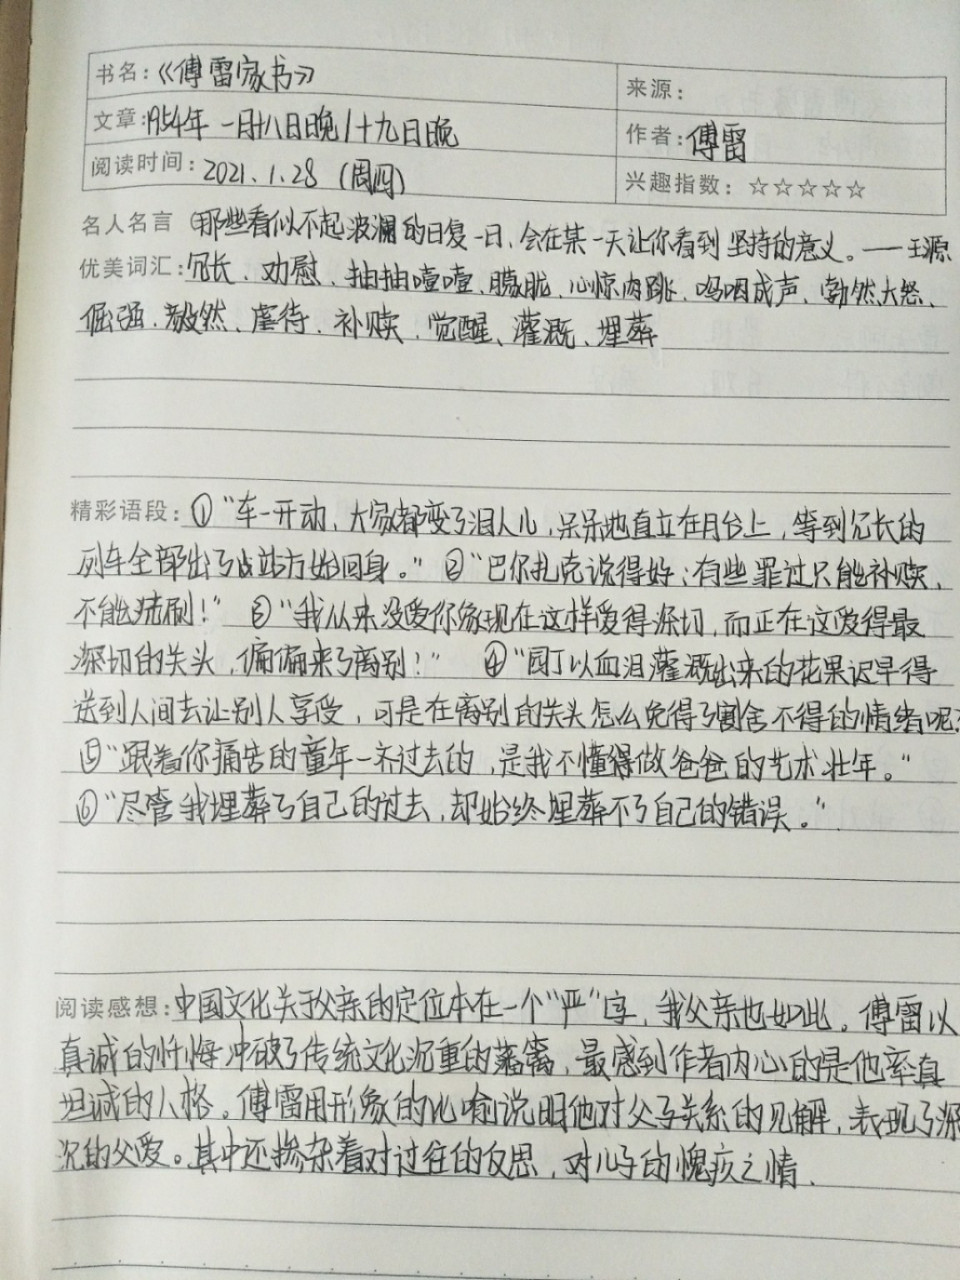 书名：《傅雷家书》
来源：
文章：1954年 一月十八日晚/十九日晚
作者：傅雷
阅读时间：2021.1.28 (周四)
兴趣指数：☆☆☆☆☆
名人名言（那些看似不起波澜的日复一日，会在某一天让你看到坚持的意义。——王源
优美词汇：冗长、劝慰、抽抽噎噎、朦胧、心惊肉跳、呜咽成声、勃然大怒、
倔强、毅然、虐待、补赎、觉醒、灌溉、埋葬
精彩语段：①“车一开动，大家都变了泪人儿，呆呆地直立在月台上，等到冗长的
列车全部出了站方始回身。” ②“巴尔扎克说得好：有些罪过只能补赎，
不能洗刷！” ③“我从来没爱你像现在这样爱得深切，而正在这爱得最
深切的关头，偏偏来了离别！” ④“园丁以血泪灌溉出来的花果迟早得
送到人间去让别人享受，可是在离别的关头怎么免得了割舍不得的情绪呢？
⑤“跟着你痛苦的童年一齐过去的，是我不懂得做爸爸的艺术壮年。”
⑥“尽管我埋葬了自己的过去，却始终埋葬不了自己的错误。”
阅读感想：中国文化关于父亲的定位本在一个“严”字，我父亲也如此。傅雷以
真诚的忏悔冲破了传统文化沉重的藩篱，最感到作者内心的是他率真
坦诚的人格。傅雷用形象的比喻说明他对父子关系的见解，表现了深
沉的父爱。其中还掺杂着对过往的反思，对儿子的愧疚之情.